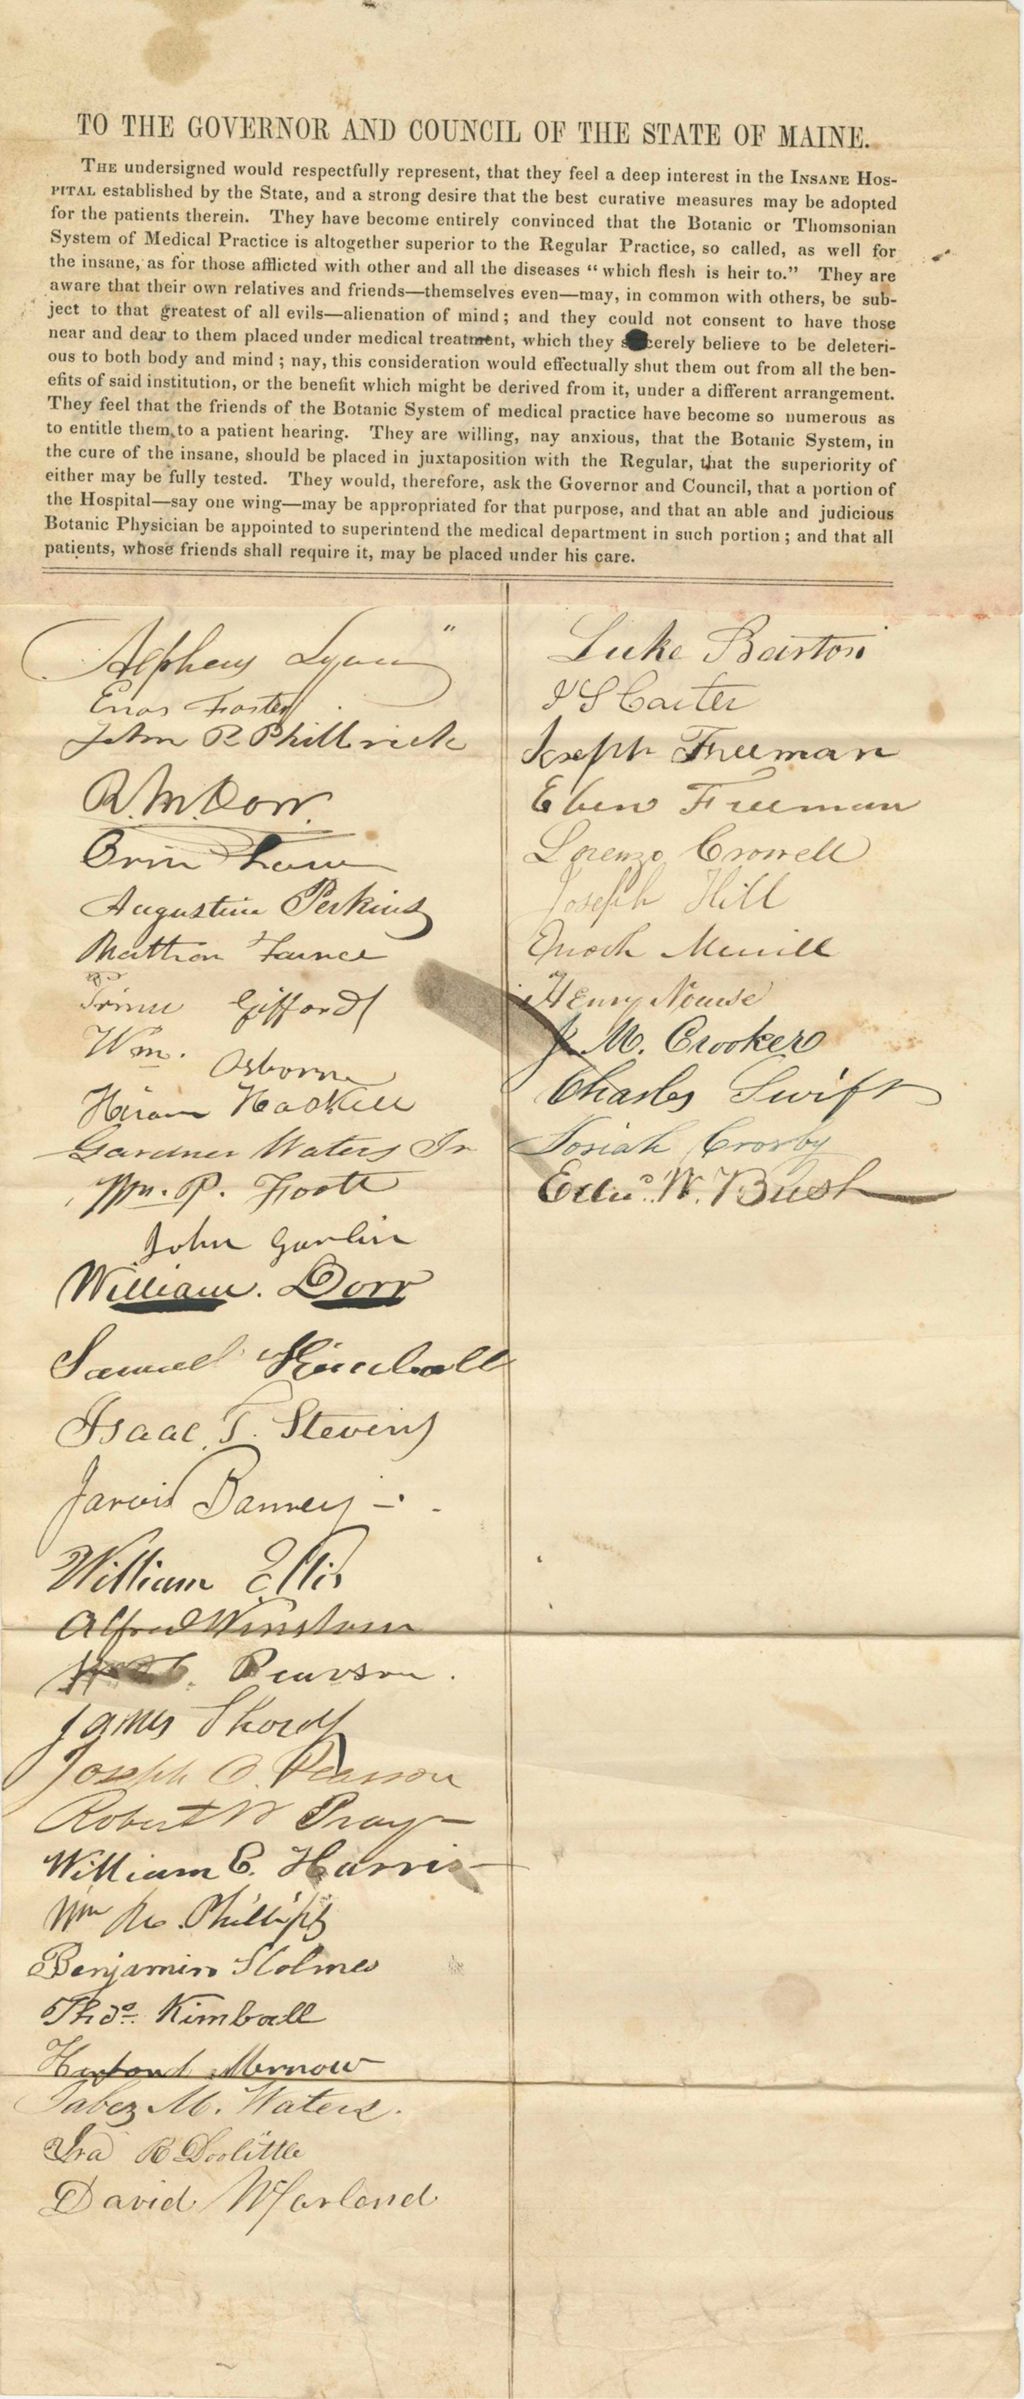 TO THE GOVERNOR AND COUNCIL OF THE STATE OF MAINE.
THE undersigned would respectfully represent, that they feel a deep interest in the INSANE HOS-
PITAL established by the State, and a strong desire that the best curative measures may be adopted
for the patients therein. They have become entirely convinced that the Botanic or Thomsonian
System of Medical Practice is altogether superior to the Regular Practice, so called, as well for
the insane, as for those afflicted with other and all the diseases “which flesh is heir to.” They are
aware that their own relatives and friends—themselves even—may, in common with others, be sub-
ject to that greatest of all evils—alienation of mind; and they could not consent to have those
near and dear to them placed under medical treatment, which they sincerely believe to be deleteri-
ous to both body and mind; nay, this consideration would effectually shut them out from all the ben-
efits of said institution, or the benefit which might be derived from it, under a different arrangement.
They feel that the friends of the Botanic System of medical practice have become so numerous as
to entitle them to a patient hearing. They are willing, nay anxious, that the Botanic System, in
the cure of the insane, should be placed in juxtaposition with the Regular, that the superiority of
either may be fully tested. They would, therefore, ask the Governor and Council, that a portion of
the Hospital—say one wing—may be appropriated for that purpose, and that an able and judicious
Botanic Physician be appointed to superintend the medical department in such portion; and that all
patients, whose friends shall require it, may be placed under his care.
Alpheus Lyon
Enos Foster
John R Philbrick
R. M. Dorr.
Orin
Augustine Perkins
Faunce
Gifford
Wm. Osborne
Hiram Haskell
Gardner Waters Jr
Wm. P. Foott
John
William. Dorr
Samuel Kimball
Isaac. T. Stevens
Jarvis Barney
William Ellis
Alfred Winslow
Pearson.
James
Joseph O. Pearson
Robert W Pray
William E. Harris
Wm Phillips
Benjamin Holmes
Thos. Kimball
Jabez M. Waters.
Ira R Doolittle
David
Luke Barton
Carter
Joseph Freeman
Eben Freeman
Lorenzo Crowell
Joseph Hill
Enoch Merrill
Henry Nourse
J. M. Crooker
Charles Swift
Josiah Crosby
Edw. W. Bush